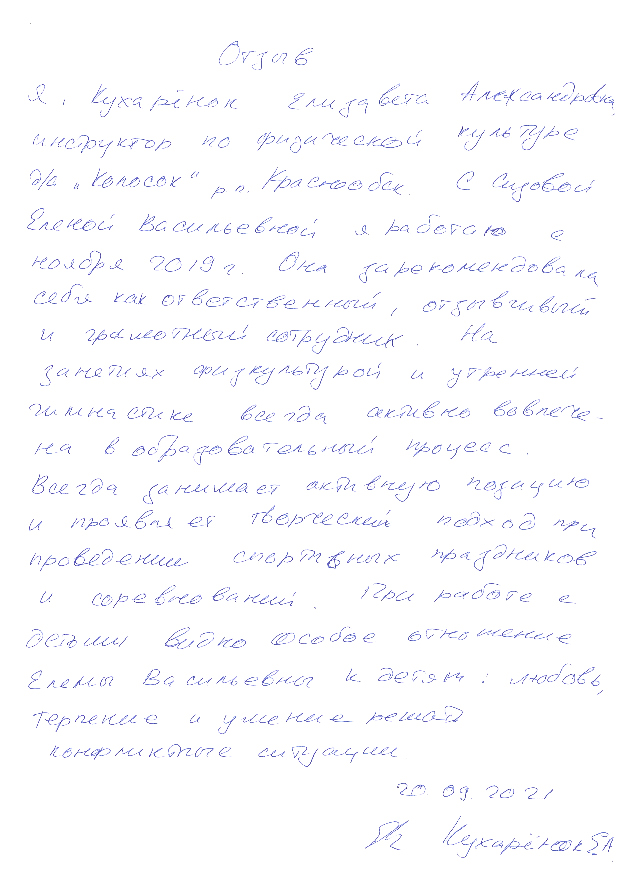 Отзыв
Я, Кухарёнок Елизавета Александровна
инструктор по физической культуре
д/с „Колосок“ р.п. Краснообск. С Сизовой
Еленой Васильевной я работаю с
ноября 2019 г. Она зарекомендовала
себя как ответственный, отзывчивый
и грамотный сотрудник. На
занятиях физкультурой и утренней
гимнастике всегда активно вовлече-
на в образовательный процесс.
Всегда занимает активную позицию
и проявляет творческий подход при
проведении спортивных праздников
и соревнований. При работе с
детьми видно особое отношение
Елены Васильевны к детям: любовь,
терпение и умение решать
конфликтные ситуации
20.09.2021
Кухарёнок ЕА